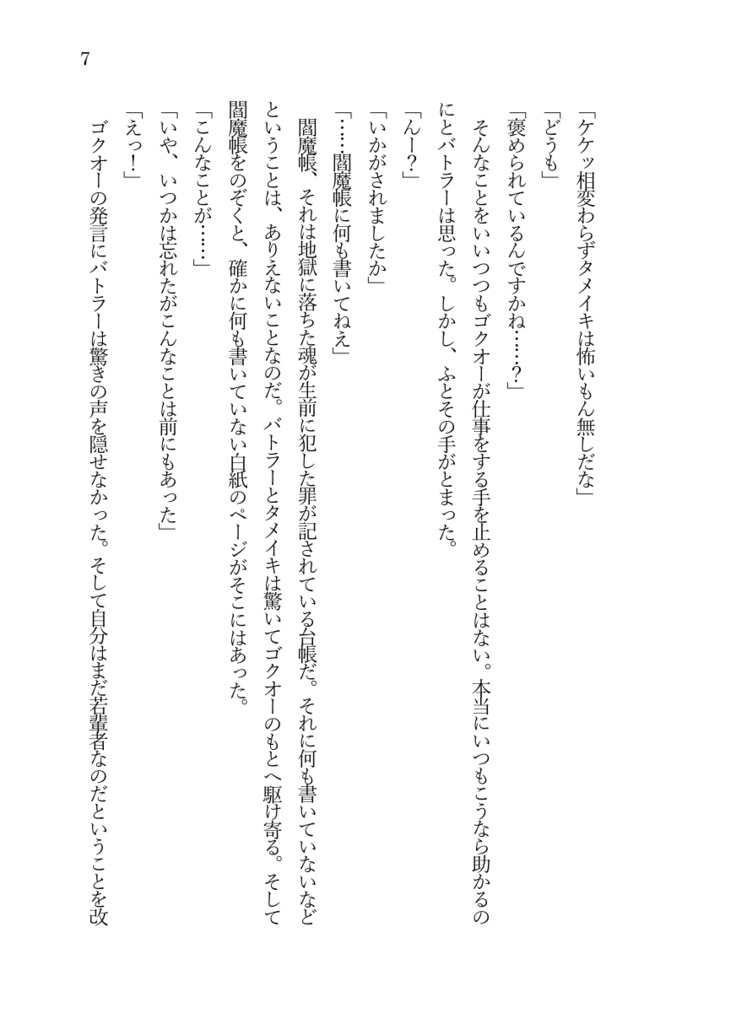 7
「ケケッ相変わらずタメイキは怖いもん無しだな」
「どうも」
「褒められているんですかね……？」
　そんなことをいいつつもゴクオーが仕事をする手を止めることはない。本当にいつもこうなら助かるの
にとバトラーは思った。しかし、ふとその手がとまった。
「んー？」
「いかがされましたか」
「……閻魔帳に何も書いてねえ」
　閻魔帳、それは地獄に落ちた魂が生前に犯した罪が記されている台帳だ。それに何も書いていないなど
ということは、ありえないことなのだ。バトラーとタメイキは驚いてゴクオーのもとへ駆け寄る。そして
閻魔帳をのぞくと、確かに何も書いていない白紙のページがそこにはあった。
「こんなことが……」
「いや、いつかは忘れたがこんなことは前にもあった」
「えっ！」
　ゴクオーの発言にバトラーは驚きの声を隠せなかった。そして自分はまだ若輩者なのだということを改